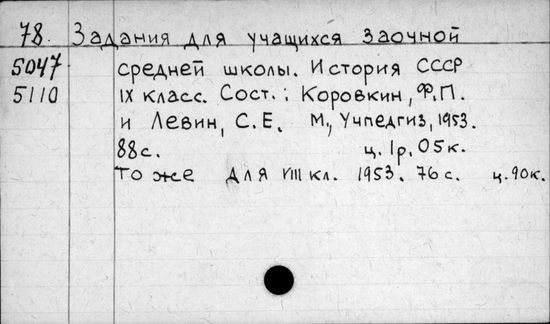 78. Задания для учащихся заочной
5047 средней школы. История СССР
5110 IX класс. Сост.: Коровкин, Ф.П.
и Левин, С.Е. М., Учпедгиз, 1953.
88с. ц. 1р. 05к.
То же для VIII кл. 1953. 76 с. ц. 90к.